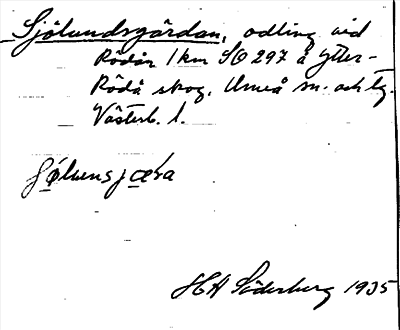 Sjölundsgärdan, odling vid
Rödån 1 km SO 297 å Ytter-
Rödå skog, Umeå sn. och tg.
Västerb. l.
H A Söderberg 1935